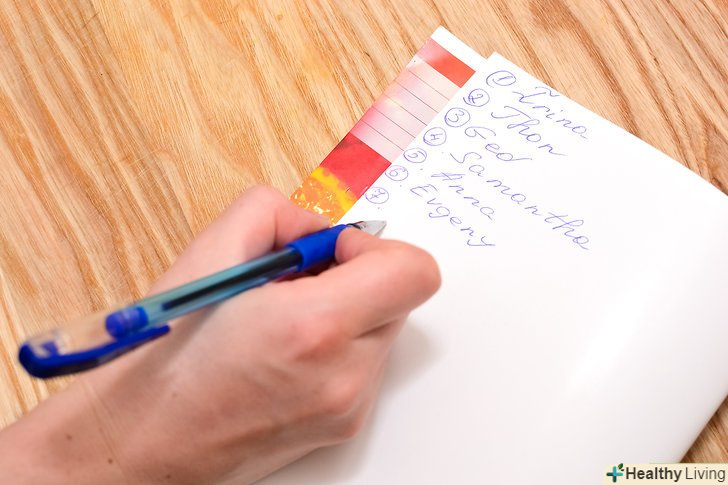 ① Irina
② Thon
③ Ged
④ Samantha
⑤ Anna
⑥ Evgeny
⑦
Healthy Living